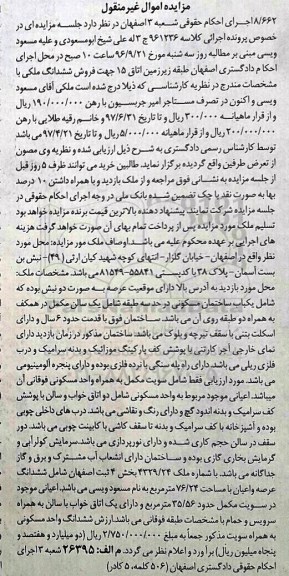 مزایده اموال غیرمنقول
۸/۶۶۲ اجرای احکام حقوقی شعبه ۳ اصفهان در نظر دارد جلسه مزایده ای در
خصوص پرونده اجرائی کلاسه ۹۶۱۲۳۶ ج ۳ له علی شیخ ابومسعودی و علیه مسعود
ویسی مبنی بر مطالبه روز سه شنبه مورخ ۹۶/۹/۲۱ ساعت ۱۰ صبح در محل اجرای
احکام دادگستری اصفهان طبقه زیرزمین اتاق ۱۵ جهت فروش ششدانگ ملکی با
مشخصات مندرج در نظریه کارشناسی که ذیلا درج شده است ملکی آقای مسعود
ویسی و اکنون در تصرف مستاجر امیر جربسیون با رهن ۱۹۰/۰۰۰/۰۰۰ ریال
و از قرار ماهیانه ۳۰۰/۰۰۰ تا و تا تاریخ ۹۷/۶/۳۱ و خانم رقیه طلایی با رهن
۲۰۰/۰۰۰/۰۰۰ ریال و از قرار ماهیانه ۵/۰۰۰/۰۰۰ ریال و تا تاریخ ۹۷/۴/۲۱ می باشد
توسط کارشناس رسمی دادگستری به شرح ذیل ارزیابی شده و نظریه وی مصون
از تعرض طرفین واقع گردیده برگزار نماید. طالبین خرید می توانند ظرف ۵ روز قبل
از جلسه مزایده به نشانی فوق مراجعه و از ملک بازدید و با همراه داشتن ۱۰ درصد
بها به صورت نقد یا چک تضمین شده بانک ملی در وجه اجرای احکام حقوقی در
جلسه مزایده شرکت نمایند. پیشنهاد دهنده بالاترین قیمت برنده مزایده خواهد بود
تسلیم ملک مورد مزایده پس از پرداخت تمام بهای آن صورت خواهد گرفت هزینه
های اجرایی بر عهده محکوم علیه می باشد. اوصاف ملک مورد مزایده: محل مورد
نظر واقع در اصفهان - خیابان گلزار - انتهای کوچه شهید کیان ارثی (۴۹) - نبش بن
بست آسمان - پلاک ۳۸ با کدپستی ۵۵۸۴۱-۸۱۵۴۹ می باشد. مشخصات ملک:
محل مورد بازدید به آدرس بالا دارای موقعیت عرصه به صورت دو نبش بوده که
شامل یکباب ساختمان مسکونی در حد سه طبقه شامل یک سالن مکمل در همکف
به همراه دو طبقه روی آن می باشد. ساختمان فوق با قدمت حدود ۶ سال و دارای
اسکلت بتنی با سقف تیرچه و بلوک می باشد. ساختمان مذکور در زمان بازدید دارای
نمای خارجی آجر کارتنی با پوشش کف پارکینگ موزائیک و بدنه سرامیک و درب
فلزی ریلی می باشد. دارای راه پله سنگی با نرده فلزی بوده و دارای پنجره آلومینیومی
می باشد. مورد ارزیابی فقط شامل سویت مکمل به همراه واحد مسکونی فوقانی آن
میباشد. اعیانی موجود مربوط به واحد مسکونی شامل دو اتاق خواب و سالن با پوشش
کف سرامیک و بدنه اندود گچ و دارای رنگ و نقاشی می باشد. درب های داخلی چوبی
بوده و آشپزخانه با کف سرامیک و بدنه تا سقف کاشی با کابینت چوبی می باشد. دور
سقف در سالن حجم کاری شده و دارای نورپردازی می باشد. سرمایش کولر آبی و
گرمایش بخاری گازی بوده و ساختمان دارای انشعاب آب مشترک و برق و گاز
جداگانه می باشد. با شماره ملک ۴۳۲۹/۲۴ بخش ۴ ثبت اصفهان شامل ششدانگ
عرصه و اعیان با مساحت ۷۶/۲۴ مترمربع به نام مسعود ویسی می باشد. اعیانی موجود
در سویت مکمل حدود ۳۵/۵۶ مترمربع و دارای یک اتاق خواب با سالن به همراه
سرویس و حمام با مشخصات طبقه فوقانی می باشد. ارزش ششدانگ واحد مسکونی
به همراه سویت مذکور جمعا به مبلغ ۲/۷۵۰/۰۰۰/۰۰۰ ریال (دو میلیارد و هفتصد و
پنجاه میلیون ریال) برآورد و اعلام نظر می گردد. م الف: ۲۶۳۹۵ شعبه ۳ اجرای
احکام حقوقی دادگستری اصفهان (۵۰۶ کلمه، ۵ کادر)